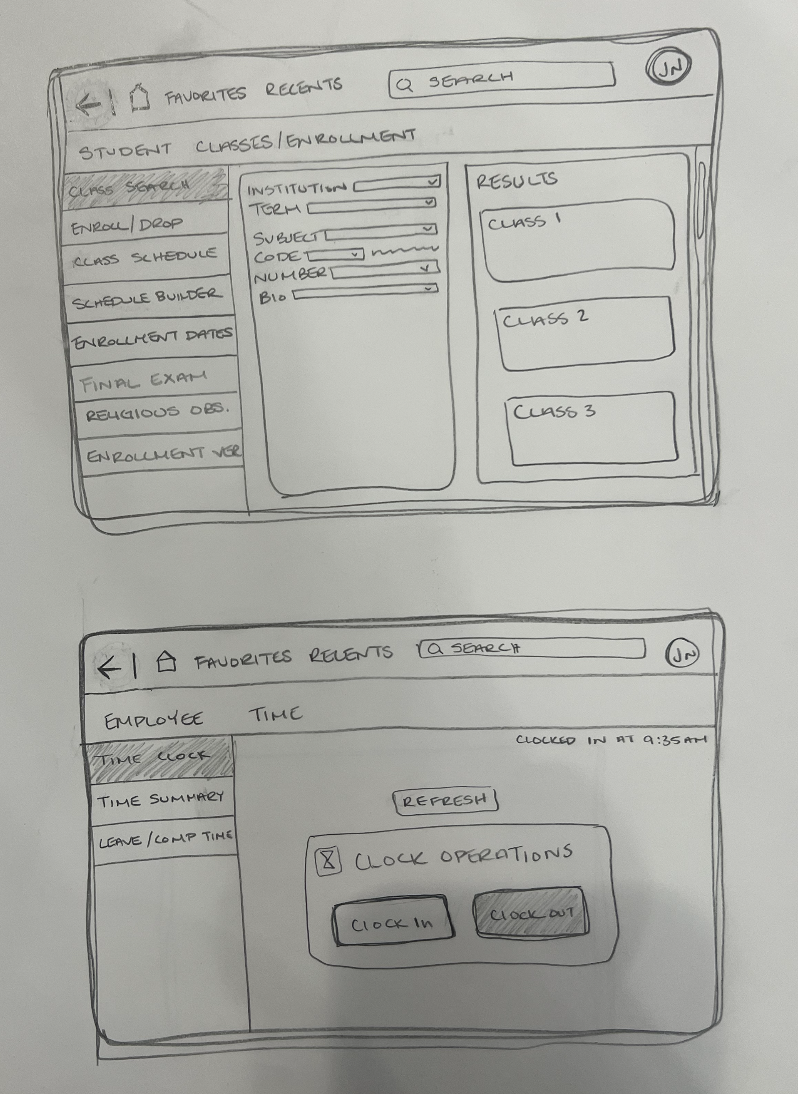 FAVORITES RECENTS SEARCH JN
STUDENT CLASSES/ENROLLMENT
CLASS SEARCH
ENROLL/DROP
CLASS SCHEDULE
SCHEDULE BUILDER
ENROLLMENT DATES
FINAL EXAM
RELIGIOUS OBS.
ENROLLMENT VER
INSTITUTION
TERM
SUBJECT
CODE
NUMBER
BIO
RESULTS
CLASS 1
CLASS 2
CLASS 3
FAVORITES RECENTS SEARCH JN
EMPLOYEE TIME
TIME CLOCK
TIME SUMMARY
LEAVE/COMP TIME
CLOCKED IN AT 9:35AM
REFRESH
CLOCK OPERATIONS
CLOCK IN CLOCK OUT